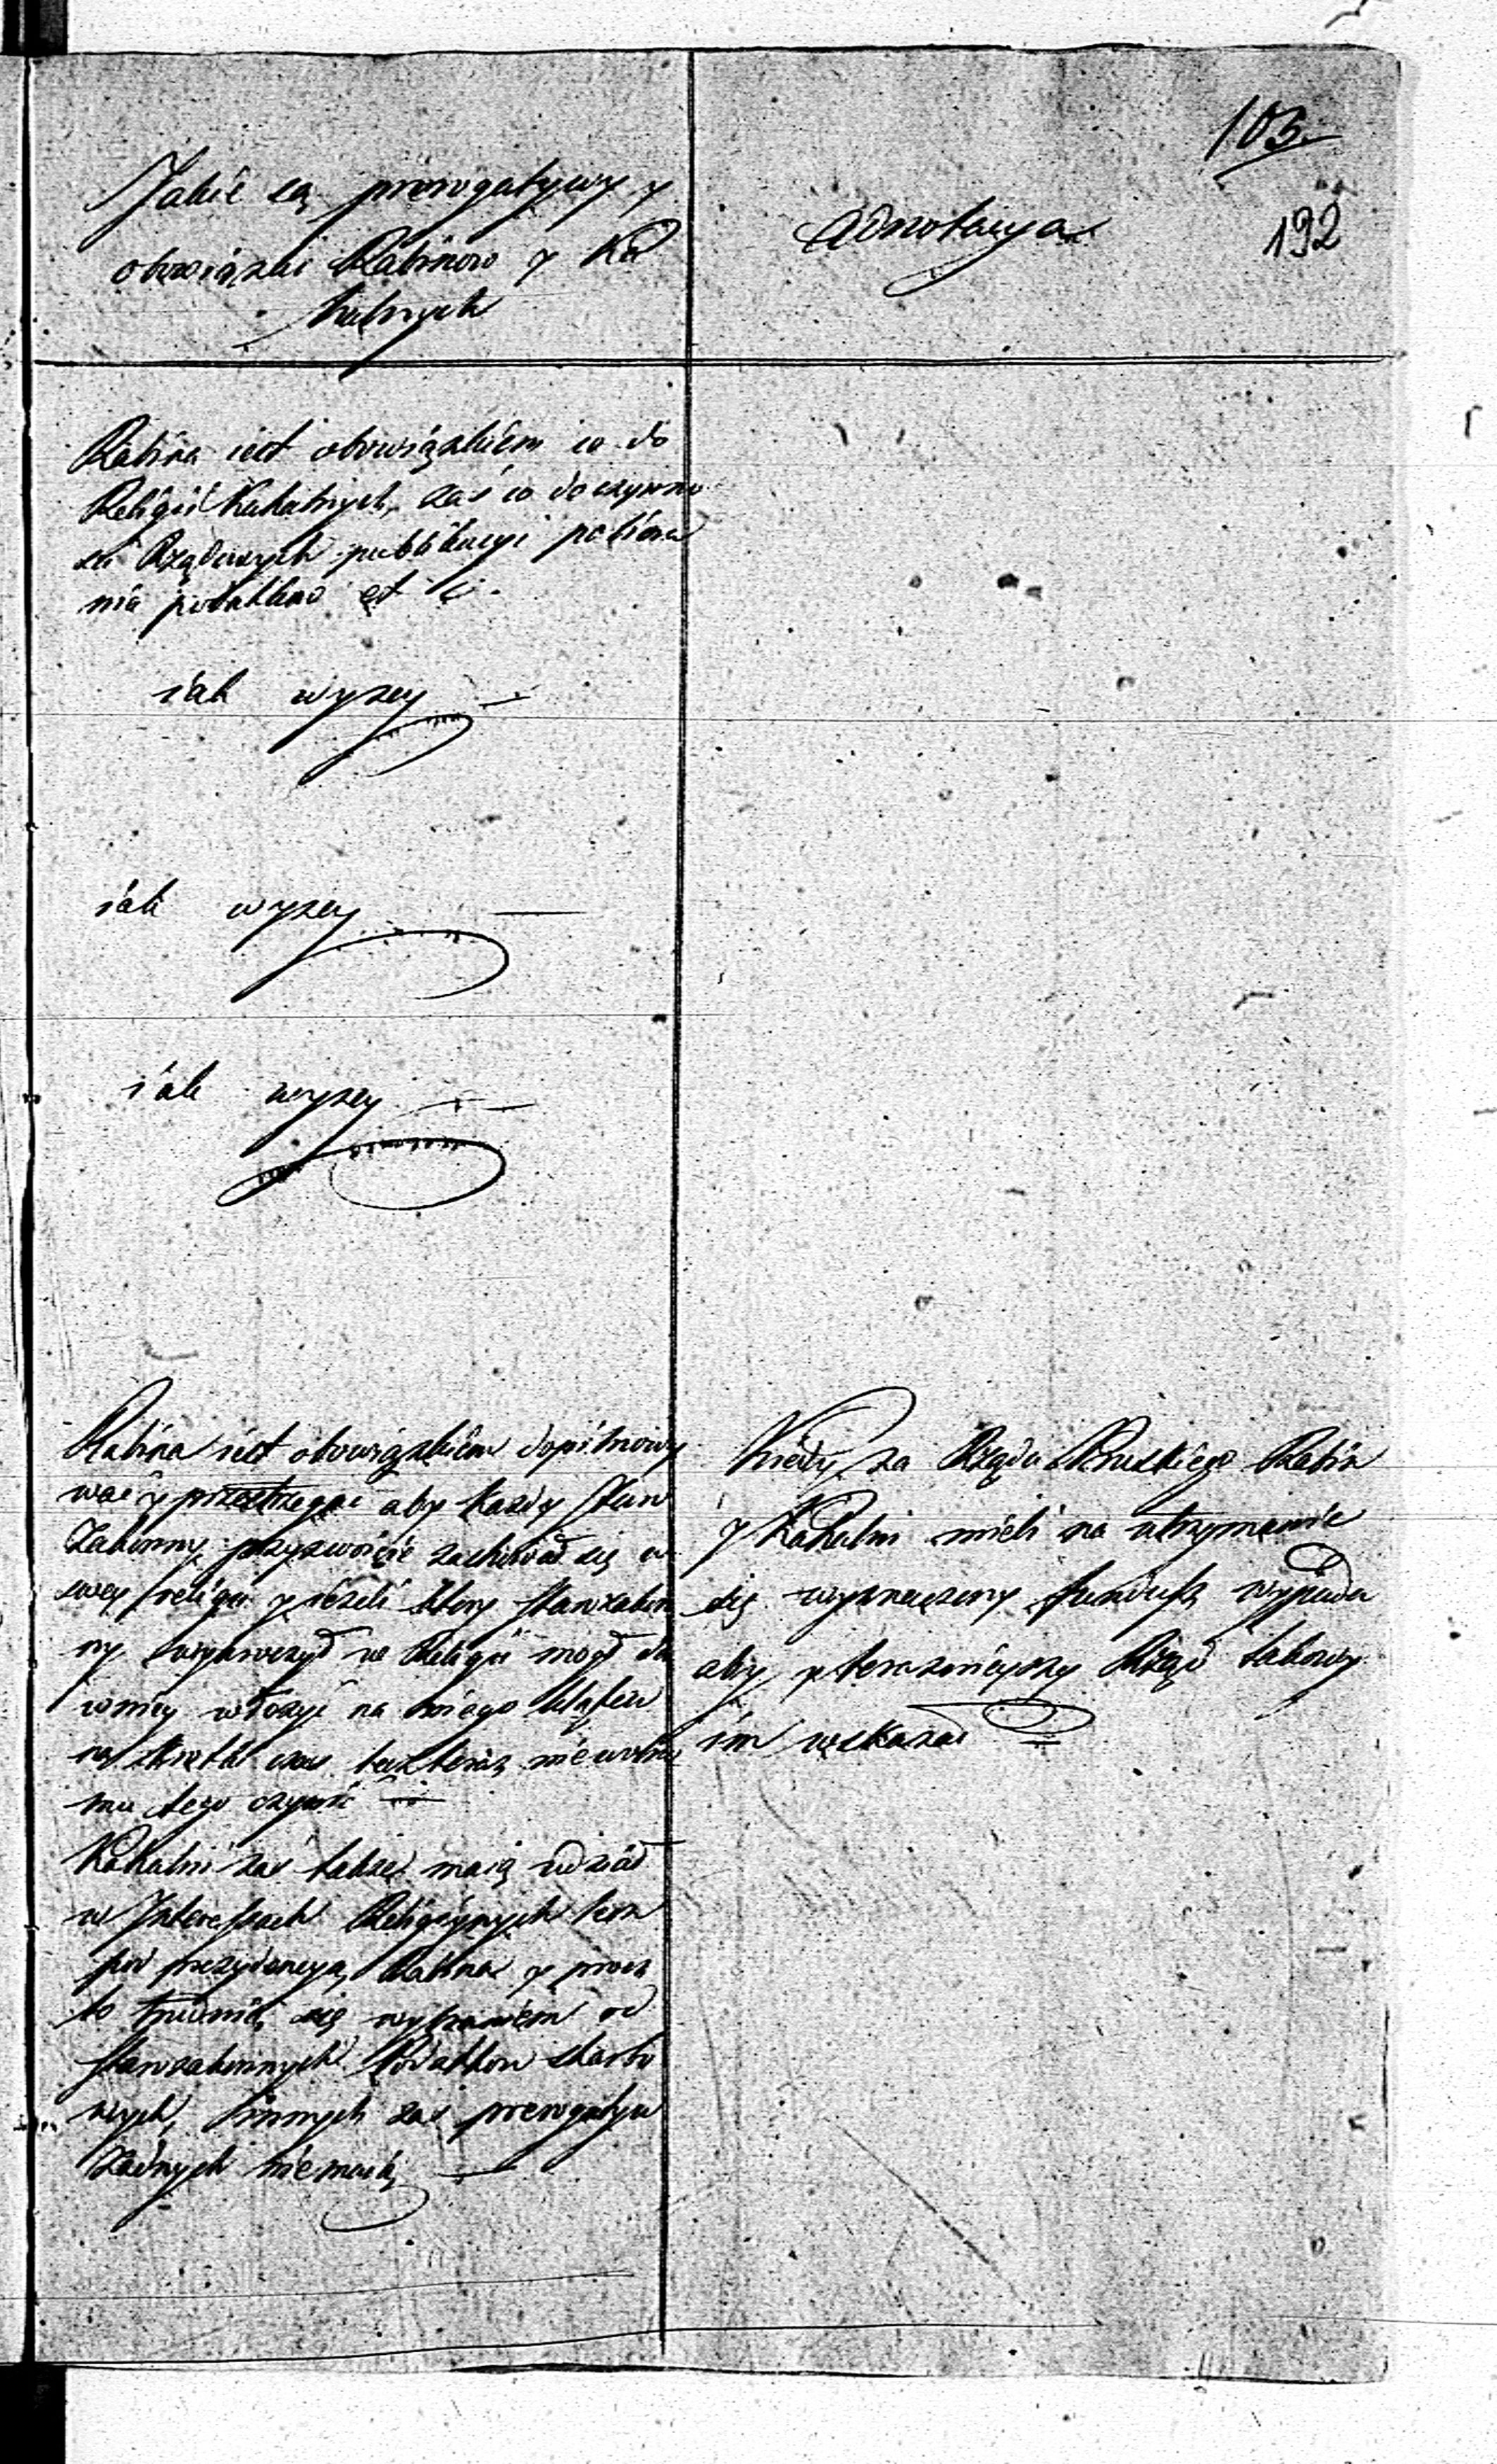 103.
192
Jakie są prerogatywy y
obowiązki Rabinow y Ka
halnych
Adnotacya
Rabina iest obowiązkiem co do
Religii Kahalnych, zaś co do czynno
sci Rządowych publikacyi pobiera
nia podatkow et c.
iak wyzey
iak wyzey
iak wyzey
Rabina iest obowiązkiem dopilnowy
wać y przestrzegać aby kazdy Staro
Zakonny przyzwoicie zachował się w
swey religii y iezeli ktory Starozakon
ny wykroczył w Religii mogł da
wniey włozyć na niego klątew
na krotki czas, teraz niewolno
mu tego czynić
Kahalni zas takze maią udział
w Interessach Religiynych lecz
pod prezydencyą Rabina y procz
to trudnią się wybraniem od
Starozakonnych Podatkow skarbo
wych, innych zas prerogatyw
zadnych niemaią
Kiedy za Rządu Pruskiego Rabin
y Kahalni mieli na utrzymanie
się wyznaczony fundusz wypada
aby y teraznieyszy Rząd takowy
im wskazał